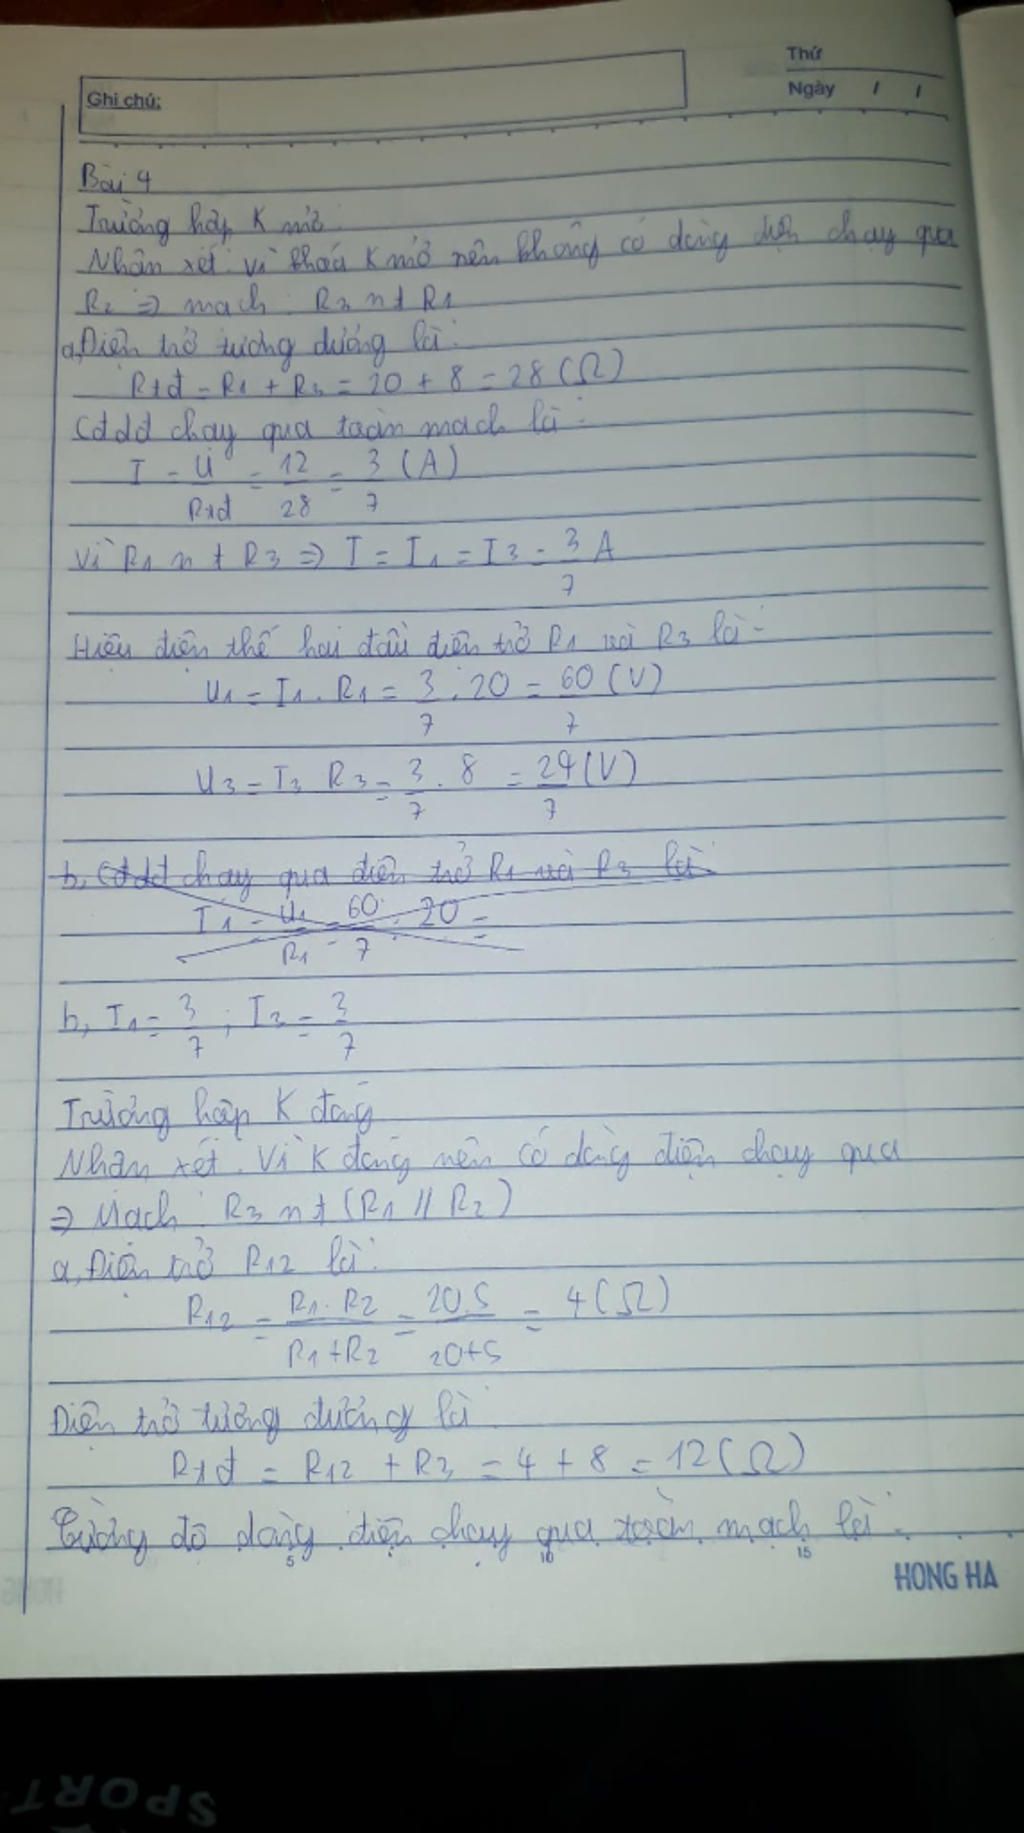 Thứ
Ghi chú:
Ngày / /
Bài 4
Trường hợp K mở:
Nhận xét: vì khoá K mở nên không có dòng điện chạy qua
R2 => mạch: R3 nt R1
a, Điện trở tương đương là:
Rtđ = R1 + R3 = 20 + 8 = 28 (Ω)
Cđdđ chạy qua toàn mạch là:
I = U/Rtđ = 12/28 = 3/7 (A)
Vì R1 nt R3 => I = I1 = I3 = 3/7 A
Hiệu điện thế hai đầu điện trở R1 và R3 là:
U1 = I1 . R1 = 3/7 . 20 = 60/7 (V)
U3 = I3 R3 = 3/7 . 8 = 24/7 (V)
b, Cđdđ chạy qua điện trở R1 và R3 là
I1 = U1/R1 = 60/7 : 20 =
b, I1 = 3/7 ; I3 = 3/7
Trường hợp K đóng
Nhận xét. Vì K đóng nên có dòng điện chạy qua
=> Mạch: R3 nt (R1 // R2)
a, Điện trở R12 là:
R12 = R1 . R2/R1 + R2 = 20.5/20+5 = 4 (Ω)
Điện trở tương đương là
Rtđ = R12 + R3 = 4 + 8 = 12 (Ω)
Cường độ dòng điện chạy qua toàn mạch là:
5 10 15
HONG HA
SPORT